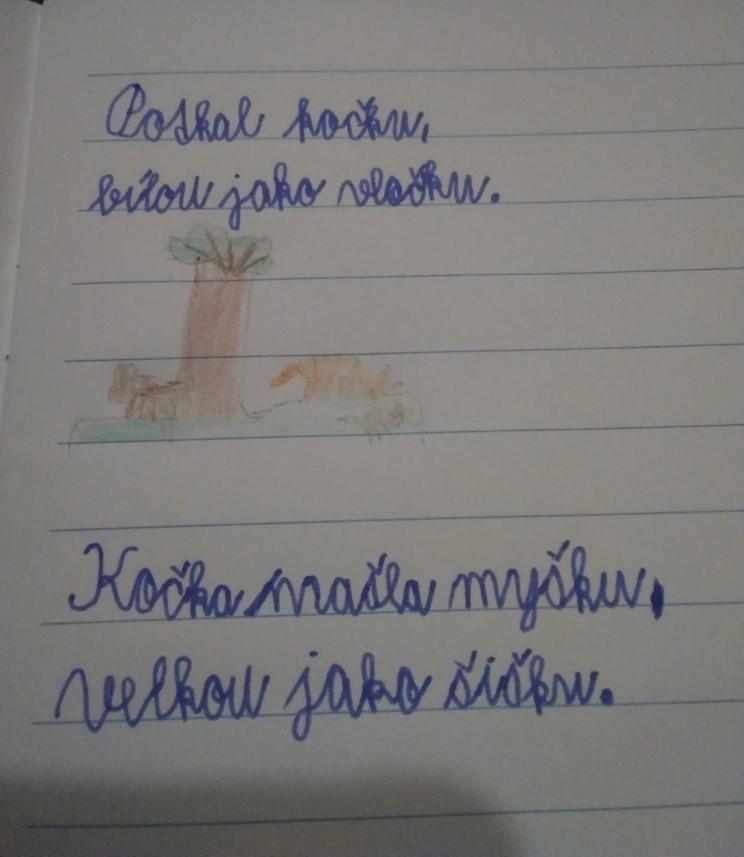 Potkal kočku,
bílou jako vločku.
Kočka našla myšku,
velkou jako šišku.